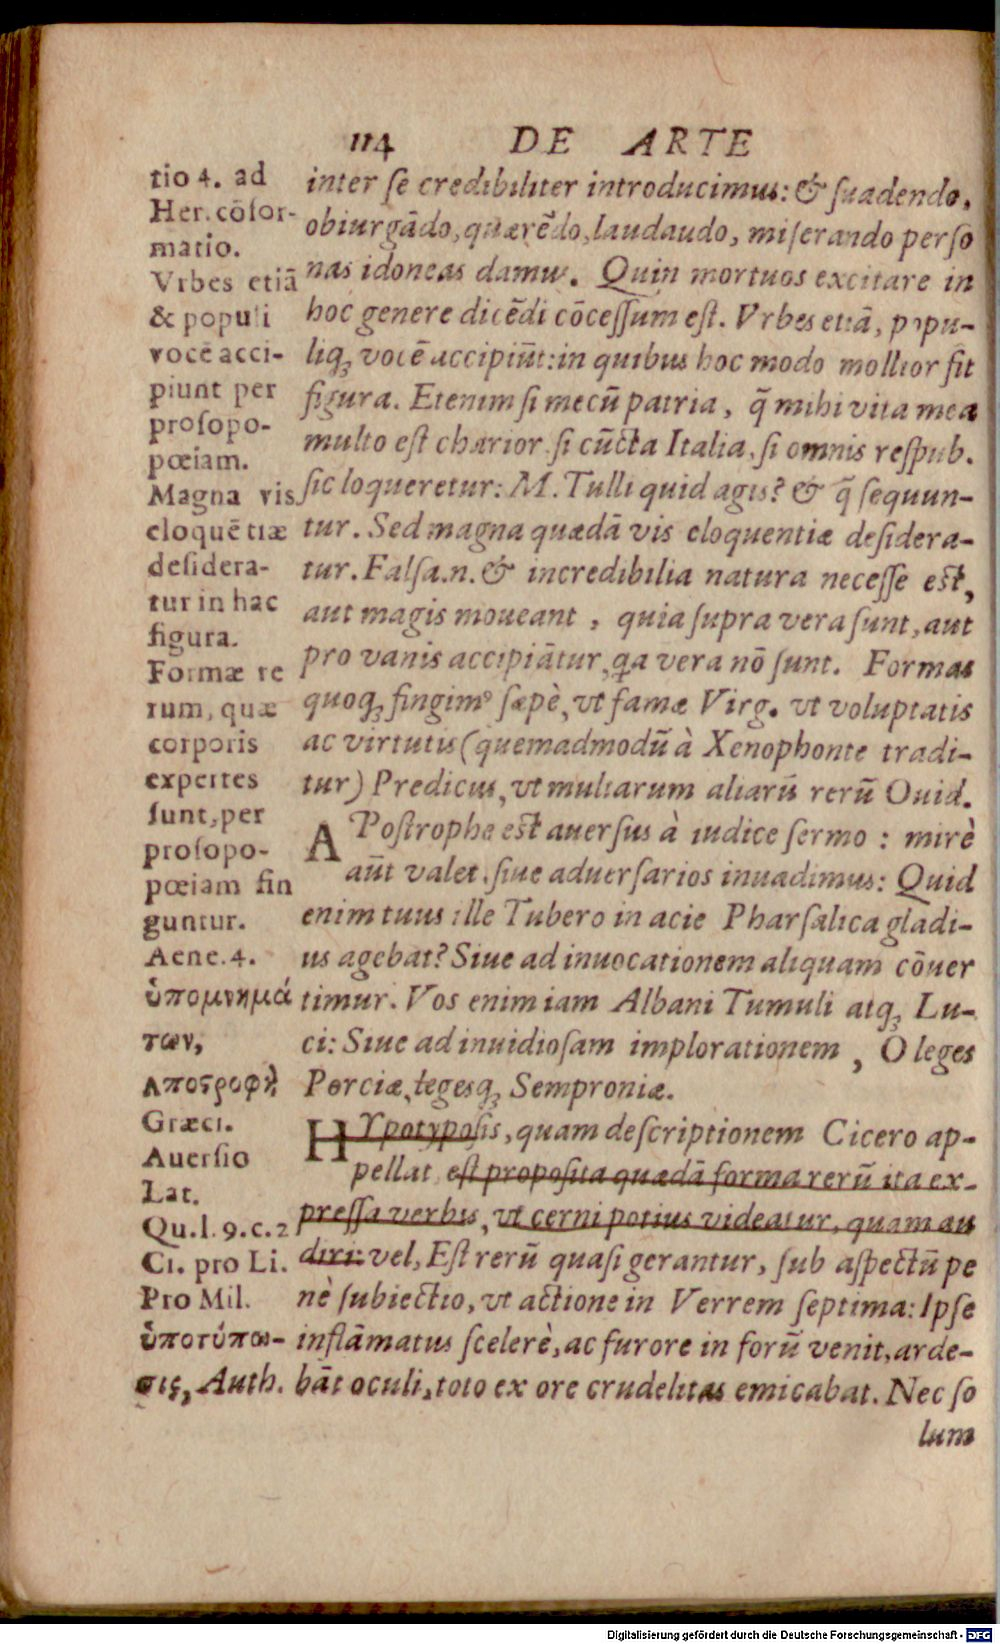 114 DE ARTE
tio 4. ad
Her. cōfor-
matio.
Vrbes etiā
& populi
vocē acci-
piunt per
proſopo-
pœiam.
Magna vis
eloquētiæ
deſidera-
tur in hac
figura.
Formæ re
rum, quæ
corporis
expertes
ſunt, per
proſopo-
pœiam fin
guntur.
Aene. 4.
ὑπομνημά
των,
Αποϛροφὴ
Græci.
Auerſio
Lat.
Qu. l. 9. c. 2
Ci. pro Li.
Pro Mil.
ὑποτύπω-
σις, Auth.
inter ſe credibiliter introducimus: & ſuadendo,
obiurgādo, quærēdo, laudaudo, miſerando perſo
nas idoneas damus. Quin mortuos excitare in
hoc genere dicēdi cōceſſum eſt. Vrbes etiā, popu-
liqꝫ vocē accipiūt: in quibus hoc modo mollior fit
figura. Etenim ſi mecū patria, q̄ mihi vita mea
multo eſt charior, ſi cūcta Italia, ſi omnis reſpub.
ſic loqueretur: M. Tulli quid agis? & q̄ ſequun-
tur. Sed magna quædā vis eloquentiæ deſidera-
tur. Falſa .n. & incredibilia natura neceſſe eſt,
aut magis moueant, quia ſupra vera ſunt, aut
pro vanis accipiātur, qa vera nō ſunt. Formas
quoqꝫ fingimꝰ ſæpè, vt famæ Virg. vt voluptatis
ac virtutis (quemadmodū à Xenophonte tradi-
tur) Predicus, vt multarum aliarū rerū Ouid.
APoſtrophe eſt auerſus à iudice ſermo: mirè
aūt valet, ſiue aduerſarios inuadimus: Quid
enim tuus ille Tubero in acie Pharſalica gladi-
us agebat? Siue ad inuocationem aliquam cōuer
timur. Vos enim iam Albani Tumuli atqꝫ Lu-
ci: Siue ad inuidioſam implorationem, O leges
Porciæ, legesqꝫ Semproniæ.
HYpotypoſis, quam deſcriptionem Cicero ap-
pellat eſt propoſita quædā forma rerū ita ex-
preſſa verbis, vt cerni potius videatur, quam au
diri: vel, Eſt rerū quaſi gerantur, ſub aſpectū pe
nè ſubiectio, vt actione in Verrem ſeptima: Ipſe
inflāmatus ſcelerè, ac furore in forū venit, arde-
bāt oculi, toto ex ore crudelitas emicabat. Nec ſo
lum
Digitalisierung gefördert durch die Deutsche Forschungsgemeinschaft - DFG